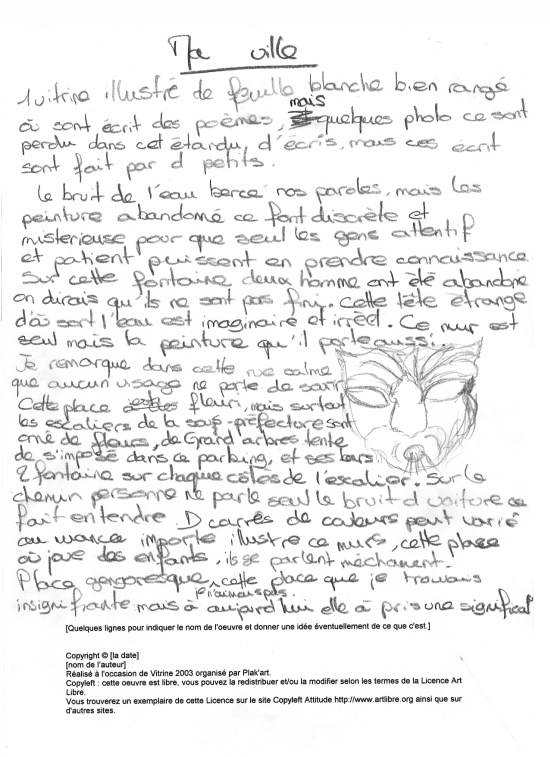 Ma ville
1 vitrine illustré de feuille blanche bien rangé
où sont écrit des poèmes, mais quelques photo ce sont
perdu dans cet étandu, d'écris, mais ces écrit
sont fait par d petits.
Le bruit de l'eau berce nos paroles, mais les
peinture abandonné ce font discrète et
misterieuse pour que seul les gens attentif
et patient puissent en prendre connaissance
Sur cette fontaine deux homme ont été abandoné
on dirais qu'ils ne sont pas fini. Cette tête étrange
d'où sort l'eau est imaginaire et irréel. Ce mur est
seul mais la peinture qu'il porte aussi.
Je remarque dans cette rue calme
que aucun visage ne porte de sourir
Cette place fleuri, mais surtout
les escaliers de la sous-préfecture sont
orné de fleurs, de Grand arbres tente
de s'imposé dans ce parking, et ses tars
2 fontaine sur chaque côtés de l'escalier. Sur le
chemin personne ne parle seul le bruit d voiture ce
fait entendre. D carrés de couleurs peut varié
ou nuance importe illustre ce murs, cette place
où joue des enfants, ils se parlent méchament.
Place gorgoresque, cette place que je trouvais
je n'aimais pas
insignifiante mais à aujourd'hui elle à pris une significat
[Quelques lignes pour indiquer le nom de l'oeuvre et donner une idée éventuellement de ce que c'est.]
Copyright © [la date]
[nom de l'auteur]
Réalisé à l'occasion de Vitrine 2003 organisé par Plak'art.
Copyleft : cette oeuvre est libre, vous pouvez la redistribuer et/ou la modifier selon les termes de la Licence Art
Libre.
Vous trouverez un exemplaire de cette Licence sur le site Copyleft Attitude http://www.artlibre.org ainsi que sur
d'autres sites.